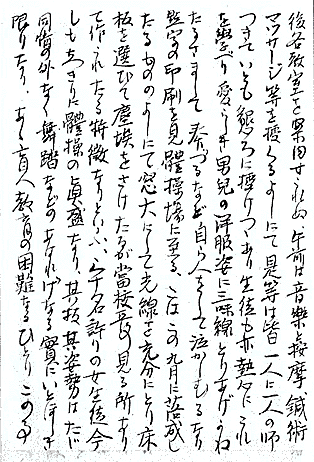 後各教室を案内せられぬ 午前は音樂と按摩、鍼術
マツサージ等を授くるよしにて是等は皆一人に一人の師
つきていとも懇ろに授けつゝあり生徒も亦熱心にこれ
を學べり愛らしき男兒の洋服姿に三味線とりあげかね
たるさまして奏づるなど自ら人をして泣かしむるなり
點字の印刷を見、體操場に至る、こはこの九月に落成し
たるものゝよしにて窓大にして光線を充分にとり床
板を選びて塵埃をさけたるが當校長の見る所あり
て作られたる特徴なりといふ、六七名許りの女生徒今
しもしきりに體操の眞盛なり、其技其姿勢はたゞ
同情の外なく舞踏などのあはれげなる實にいとほしき
限りなり、あゝ盲人教育の困難なるひとりこの事